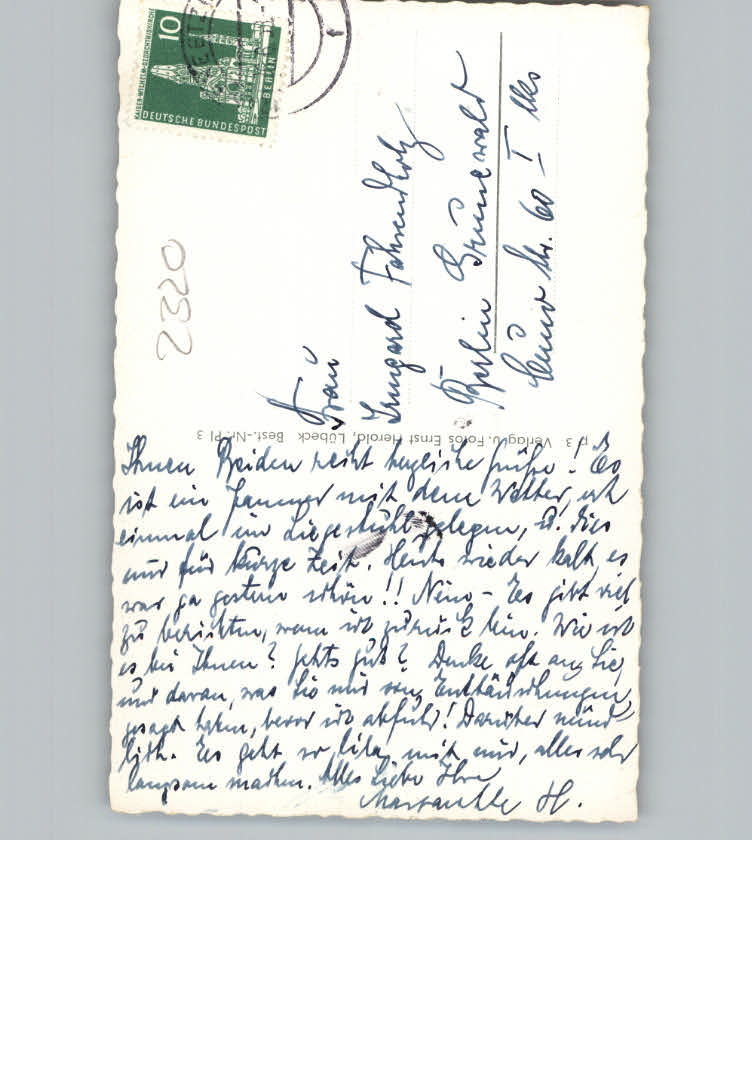 10
KAISER-WILHELM-GEDÄCHTNISKIRCHE
BERLIN
DEUTSCHE BUNDESPOST
2320
Frau
Irmgard Fahrendholz
Berlin Grunewald
Str. 60 I
p 3 Verlag u. Fotos Ernst Herold, Lübeck Best.-Nr. Pl 3
Ihnen Beiden recht herzliche Grüße! Es
ist ein Jammer mit dem Wetter, erst
einmal im Liegestuhl gelegen, u. dies
nur für kurze Zeit. Heute wieder kalt, es
war ja gestern schön!! Nun - Es gibt viel
zu berichten, wenn ich zurück bin. Wie ist
es bei Ihnen? Gehts gut? Denke oft an Sie,
und daran, was Sie mir von Enttäuschungen
gesagt haben, bevor ich abfuhr! Darüber münd-
lich. Es geht so lila mit mir, alles sehr
langsam machen. Alles Liebe Ihre
H.